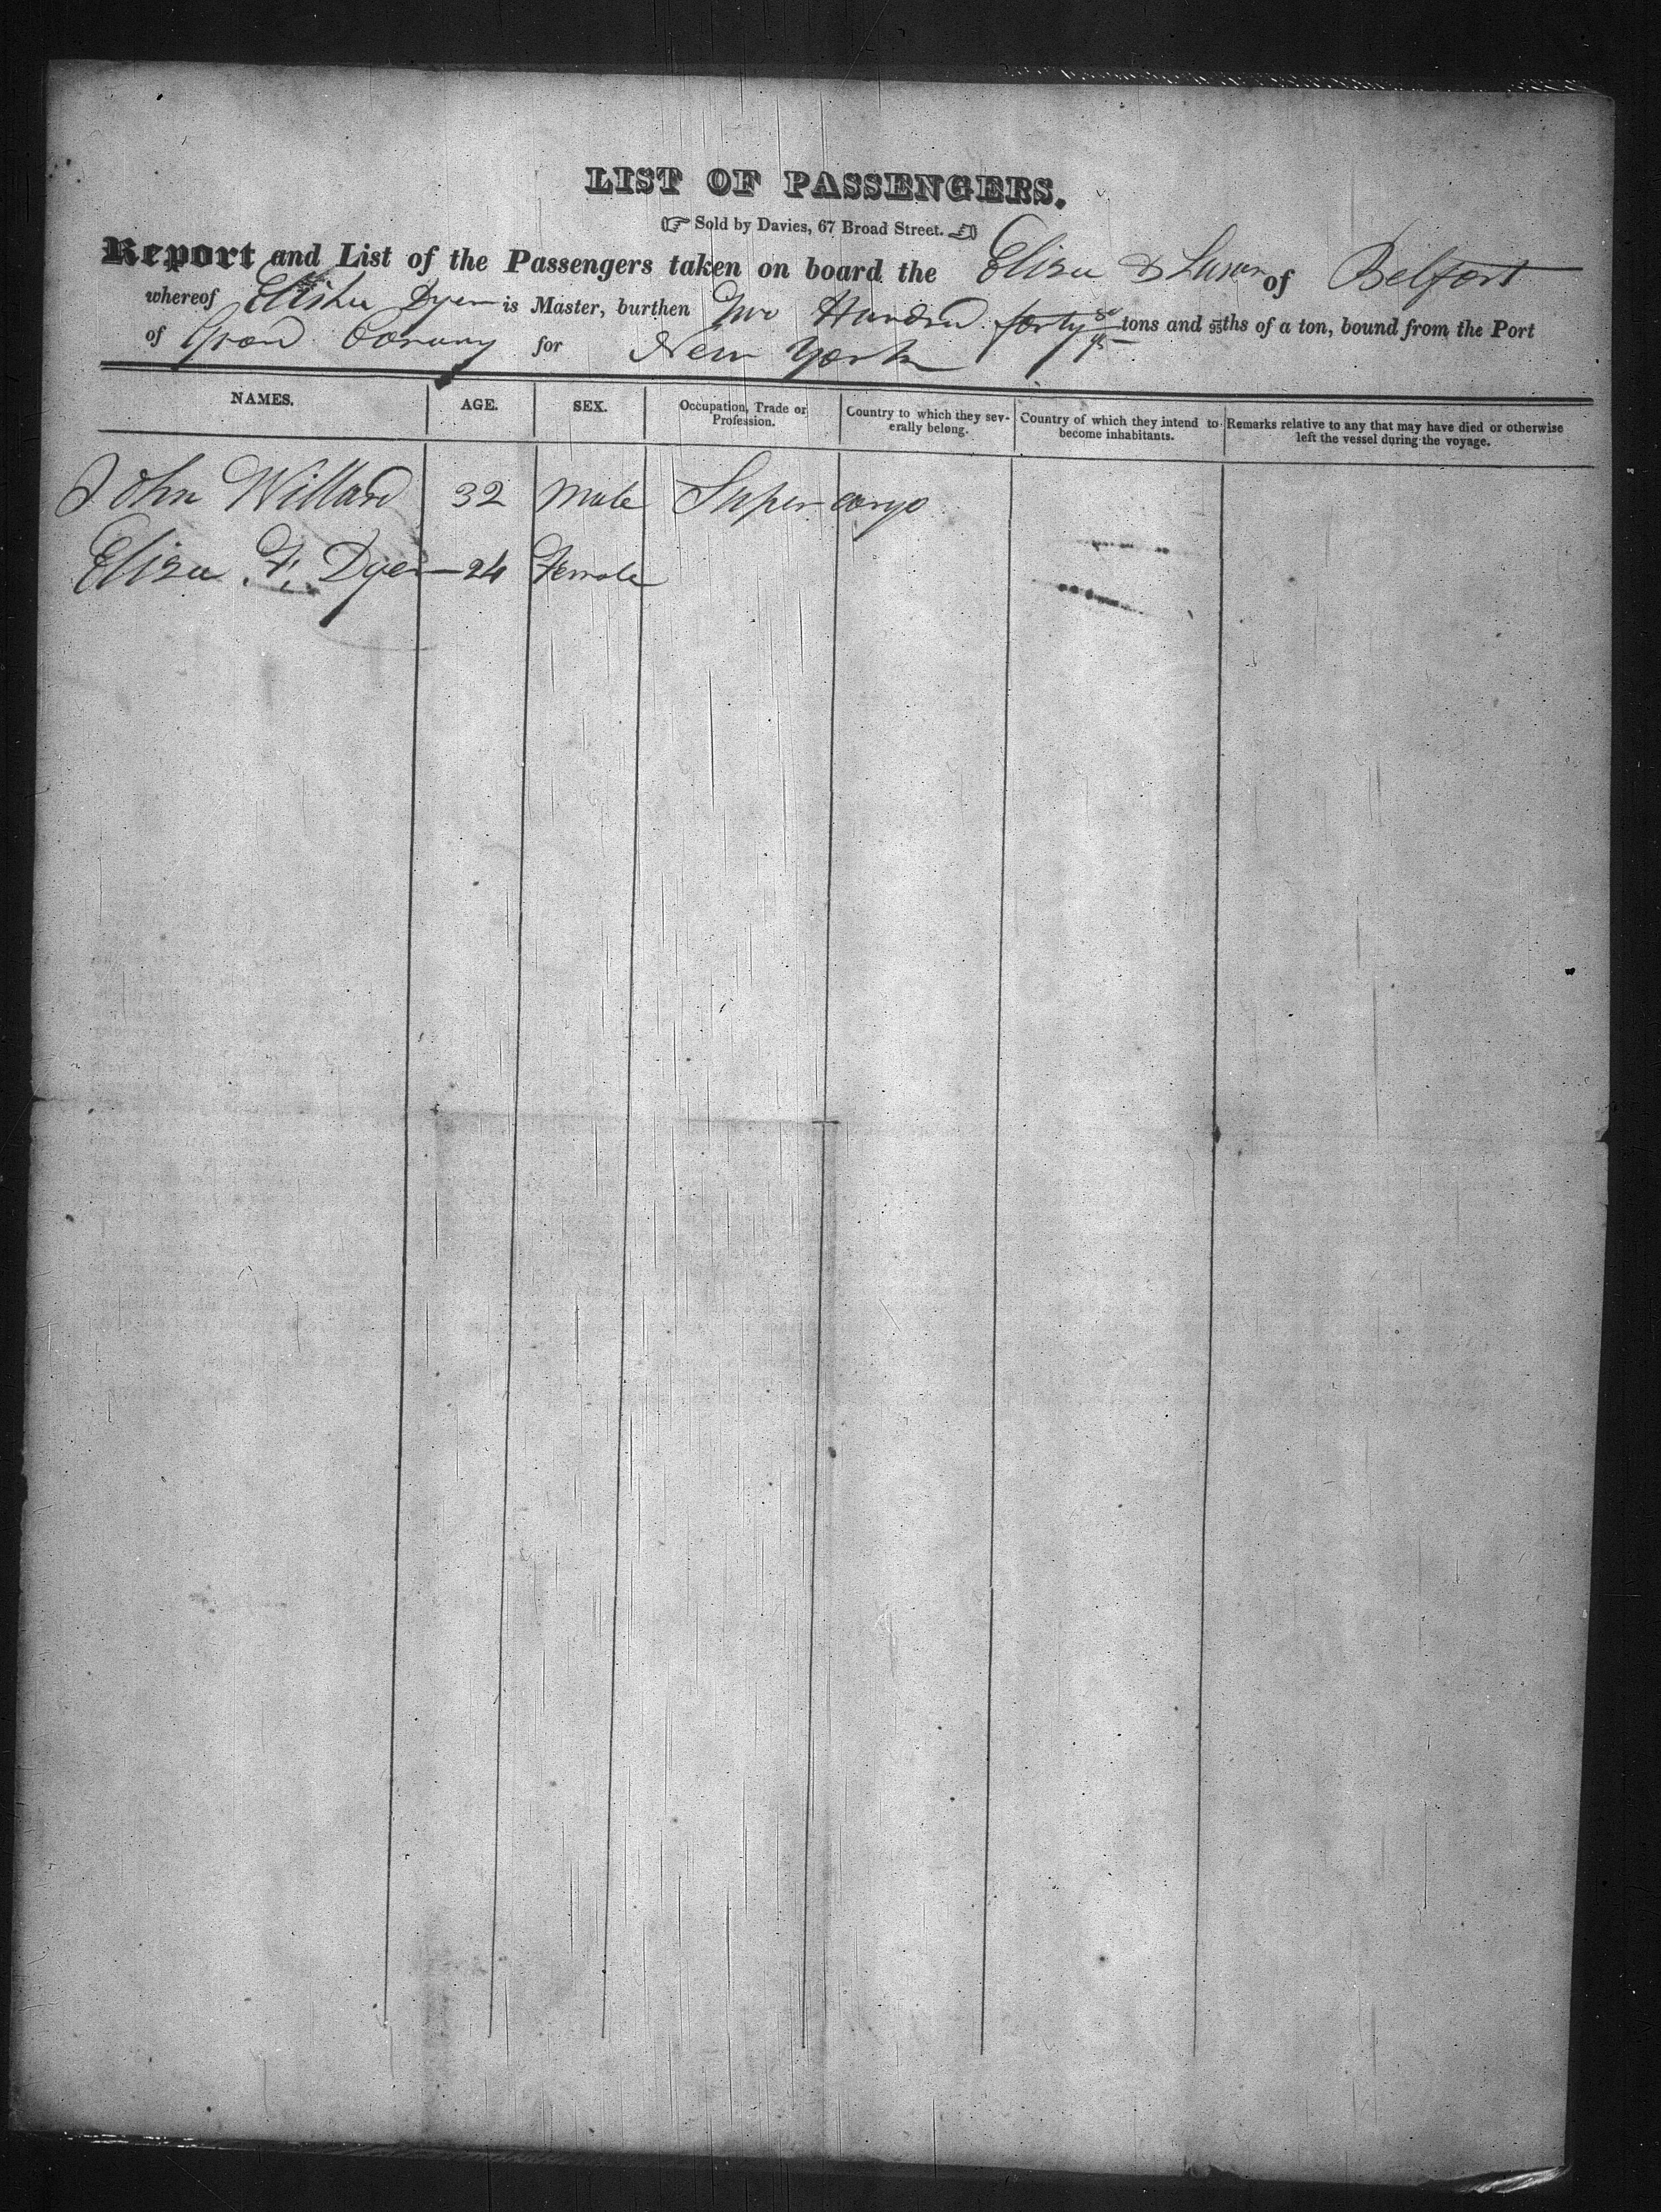 LIST OF PASSENGERS.
Sold by Davies, 67 Broad Street.
Report and List of the Passengers taken on board the Eliza & Susan of Belfast
whereof Elisha Dyer is Master, burthen Two Hundred forty tons and 95ths of a ton, bound from the Port
of Gran Canary for New York
NAMES. AGE. SEX. Occupation, Trade or Profession. Country to which they severally belong. Country of which they intend to become inhabitants. Remarks relative to any that may have died or otherwise left the vessel during the voyage.
John Willard 32 Male Super cargo
Eliza F. Dyer 24 Female